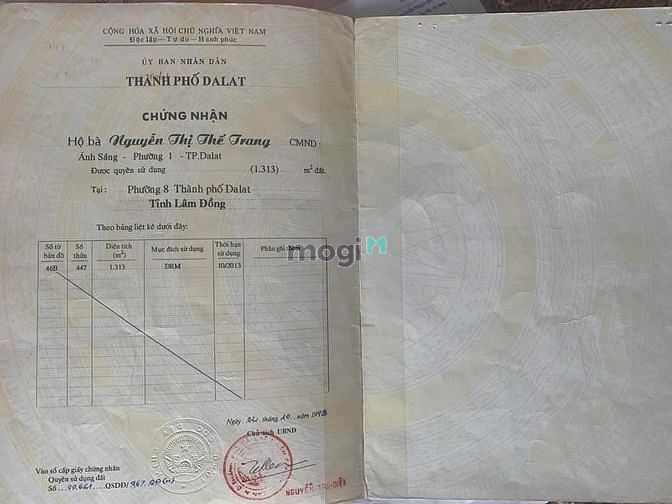 CỘNG HÒA XÃ HỘI CHỦ NGHĨA VIỆT NAM
Độc lập—Tự do—Hạnh phúc
ỦY BAN NHÂN DÂN
THÀNH PHỐ DALAT
CHỨNG NHẬN
Hộ bà Nguyễn Thị Thế Trang CMND:
Ánh Sáng - Phường 1 - TP.Dalat
Được quyền sử dụng (1.313) m² đất.
Tại: Phường 8 Thành phố Dalat
Tỉnh Lâm Đồng
Theo bảng liệt kê dưới đây:
Số tờ bản đồ Số thửa Diện tích (m²) Mục đích sử dụng Thời hạn sử dụng Phần ghi thêm
46B 447 1.313 ĐRM 10/2013
mogi
Ngày tháng 10 năm
Chủ tịch UBND
Vào sổ cấp giấy chứng nhận
Quyền sử dụng đất
Số QSDĐ/
NGUYỄN TRI DIỆN